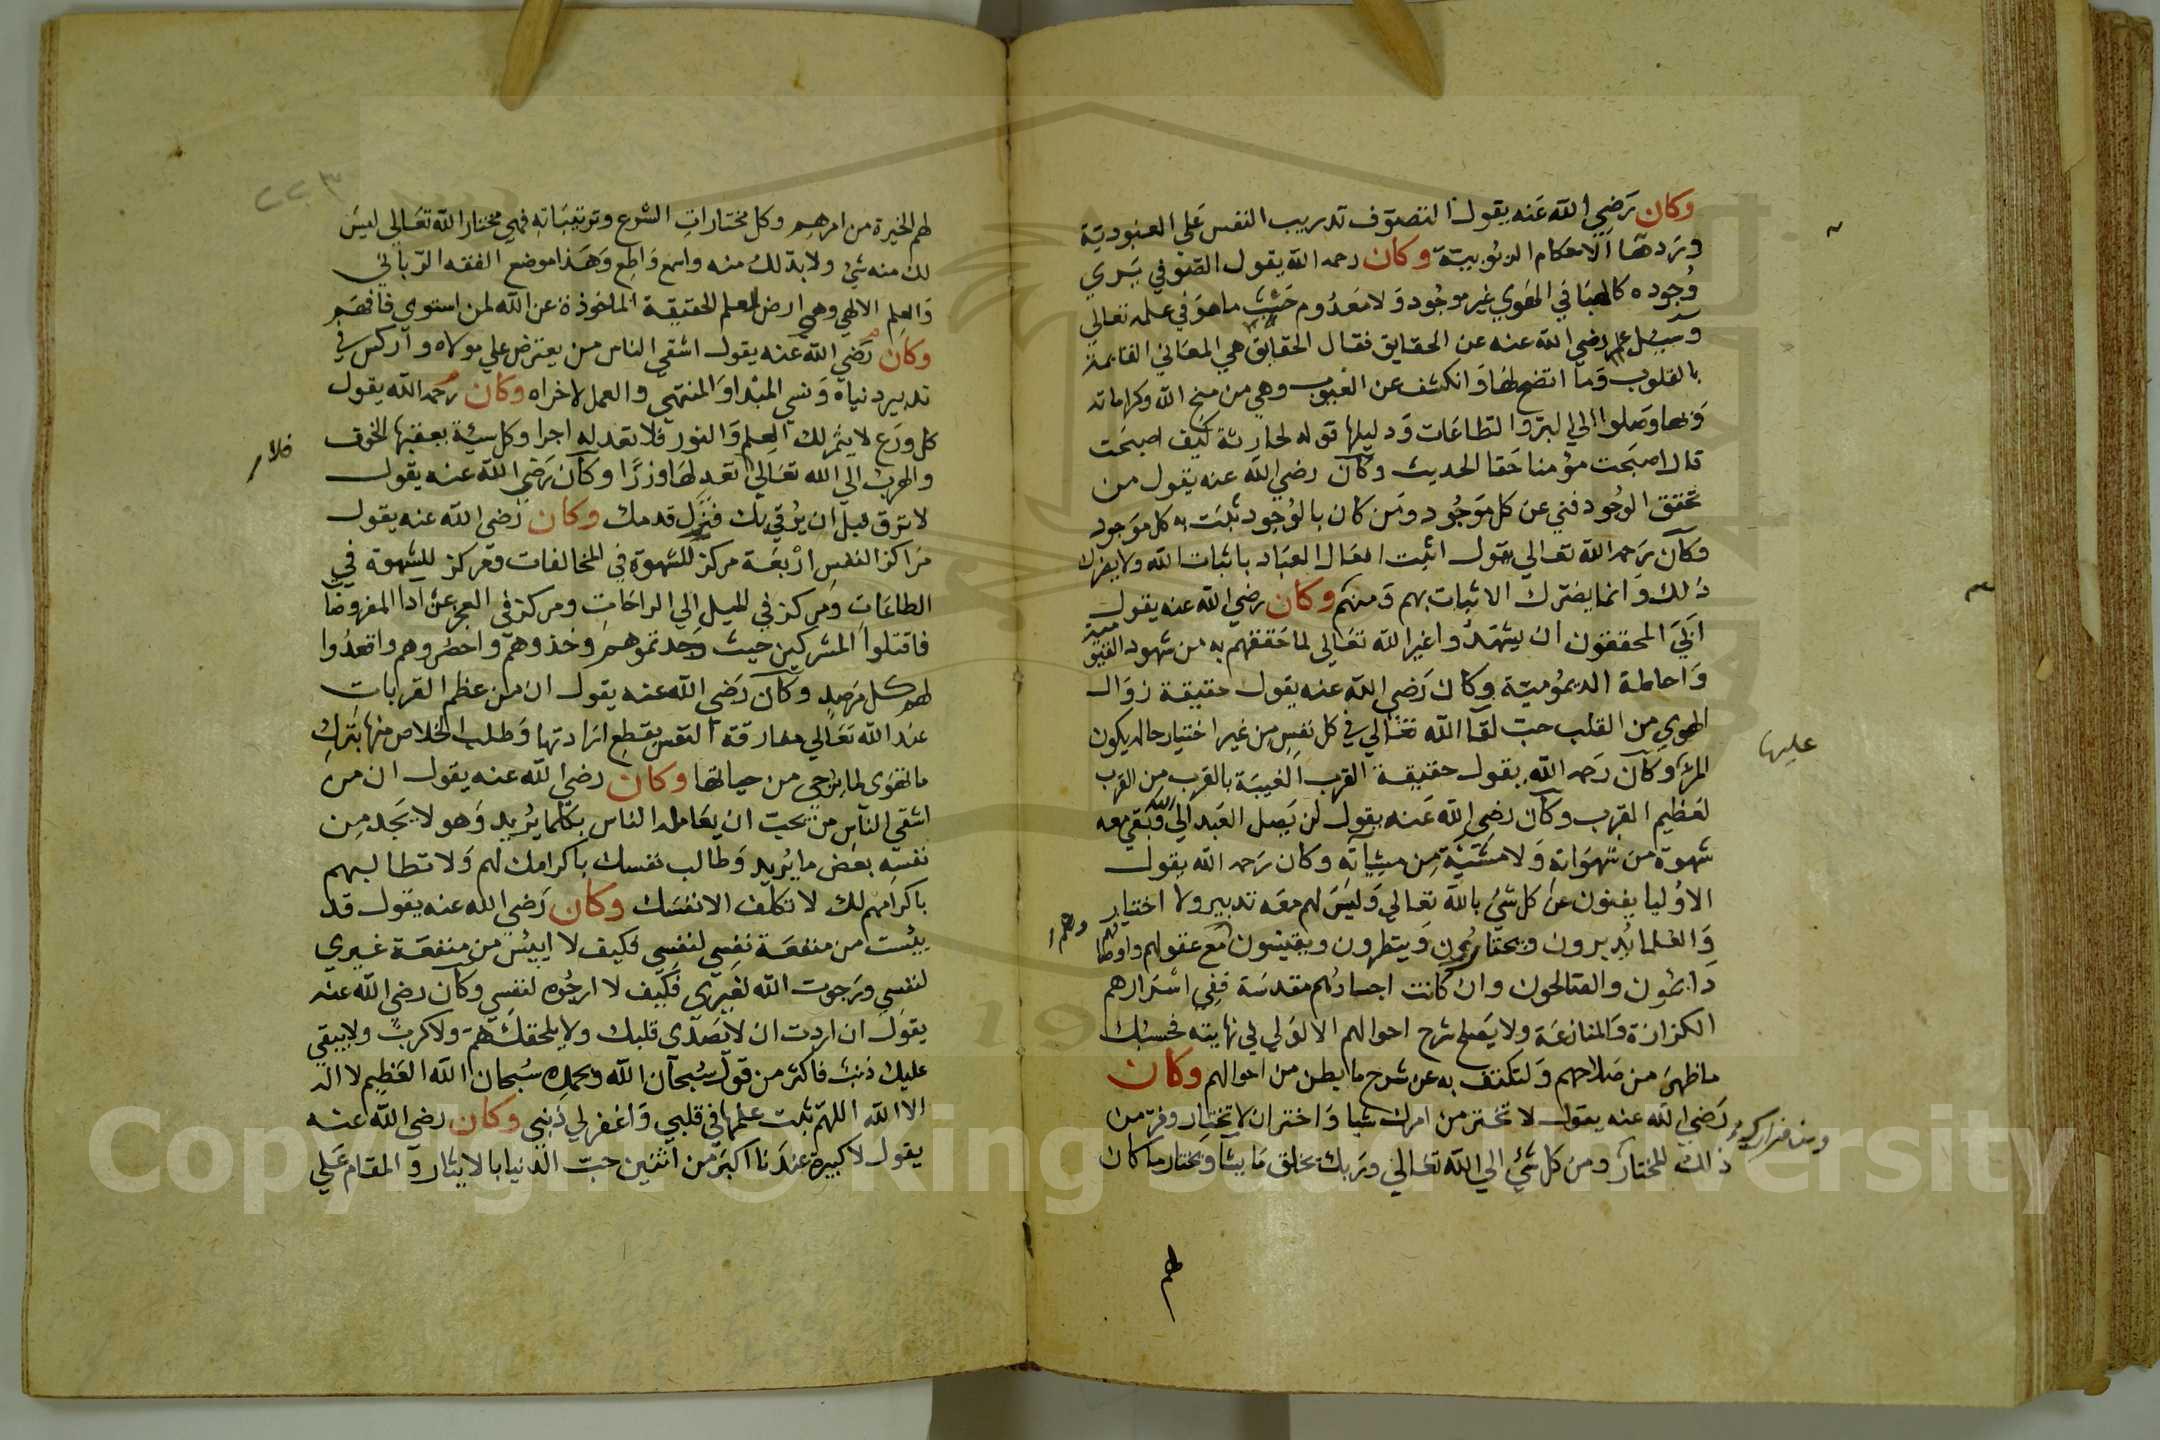 وكان رَضي الله عَنه يقول التصوف تدريب النفس علي العبودية
وردها الاحكام الربوبية وكان رحمه الله يقول الصوفي يري
وجوده كالهبا في الهوي غير موجود ولا معدوم حَسْبَ ما هو في علمه تعالي
وسيل رضي الله عنه عن الحقايق فقال الحقايق هي المعاني القايمة
بالقلوب وما اتضح لها وانكشف عن الغيوب وهي من منح الله وكراماته
وبها وصلوا الي البر والطاعات ودليلها قوله لحارثة كيف اصبحت
قال اصبحت مؤمنا حقا الحديث وكان رضي الله عنه يقول من
تحقق الوجود فني عن كل موجود ومن كان بالوجود ثبت به كل موجود
وكان رحمه الله تعالي يقول اثبت افعال العباد باثبات الله ولا يضرك
ذلك وانما يضرك الاثبات بهم ومنهم وكان رضي الله عنه يقول
ابي المحققون ان يشهدوا غير الله تعالي لما حققهم به من شهود القيومية
واحاطة الديمومية وكان رضي الله عنه يقول حقيقة زوال
الهوي من القلب حب لقا الله تعالي في كل نفس من غير اختيار حاله يكون
المرء وكان رحمه الله يقول حقيقة القرب الغيبة بالقرب من القرب
لعظيم القرب وكان رضي الله عنه يقول لن يصل العبد الي الله وبقي معه
شهوة من شهواته ولا مشية من مشياته وكان رحمه الله يقول
الاوليا يفنون عن كل شي بالله تعالي وليس لهم معه تدبير ولا اختيار
والعلما يدبرون ويختارون وينظرون ويقيسون مع عقولهم واوصافهم
دايمون والصالحون وان كانت اجسادهم مقدسة ففي اسرارهم
الكزازة والمنازعة ولا يصلح شرح احوالهم الا لولي في نهايته فحسبك
ما ظهر من صلاحهم ولتكتف به عن شرح ما بطن من احوالهم وكان
رضي الله عنه يقول لا تختر من امرك شيا واختر ان لا تختار وفر من
ذلك المختار ومن كل شي الي الله تعالي وربك يخلق ما يشا ويختار ما كان
عليها
لهم
لهم الخيرة من امرهم وكل مختارات الشرع وترتيباته فهي مختار الله تعالي ليس
لك منه شي ولا بد لك منه واسمع واطع وهذا موضع الفقه الرباني
والعلم الالهي وهي ارض لعلم الحقيقة الماخوذة عن الله لمن استوي فافهم
وكان رضي الله عنه يقول اشقي الناس من يعترض علي مولاه واركس في
تدبير دنياه ونسي المبدا والمنتهي والعمل لاخراه وكان رحمه الله يقول
كل ورع لا يثمر لك العلم والنور فلا تعد له اجرا وكل سيئة يعقبها الخوف
والهرب الي الله تعالي تعد لها وزرًا وكان رضي الله عنه يقول
فلا
لا ترق قبل ان يرقي بك فتزل قدمك وكان رضي الله عنه يقول
مراكز النفس اربعة مركز للشهوة في المخالفات ومركز للشهوة في
الطاعات ومركز في الميل الي الراحات ومركز في العجز عن ادا المفروضات
فاقتلوا المشركين حيث وجدتموهم وخذوهم واحصروهم واقعدوا
لهم كل مرصد وكان رضي الله عنه يقول ان من عظم القربات
عند الله تعالي مفارقة النفس بقطع ارادتها وطلب الخلاص منها بترك
ما تهوي لما يرجي من حياتها وكان رضي الله عنه يقول ان من
اشقي الناس من يحب ان يعامله الناس بكلما يريد وهو لا يجد من
نفسه بعض ما يريد وطالب نفسك باكرامك لهم ولا تطالبهم
باكرامهم لك لا تكلف الا نفسك وكان رضي الله عنه يقول قد
يئست من منفعة نفسي لنفسي فكيف لا اييس من منفعة غيري
لنفسي ورجوت الله لغيري فكيف لا ارجوه لنفسي وكان رضي الله عنه
يقول ان اردت ان لا يصدي قلبك ولا يلحقك هم ولا كرب ولا يبقي
عليك ذنب فاكثر من قول سبحان الله وبحمده سبحان الله العظيم لا اله
الا الله اللهم ثبت علمها في قلبي واغفر لي ذنبي وكان رضي الله عنه
يقول لا كبيرة عندنا اكبر من اثنين حب الدنيا بالايثار والمقام علي
Copyright © King Saud University